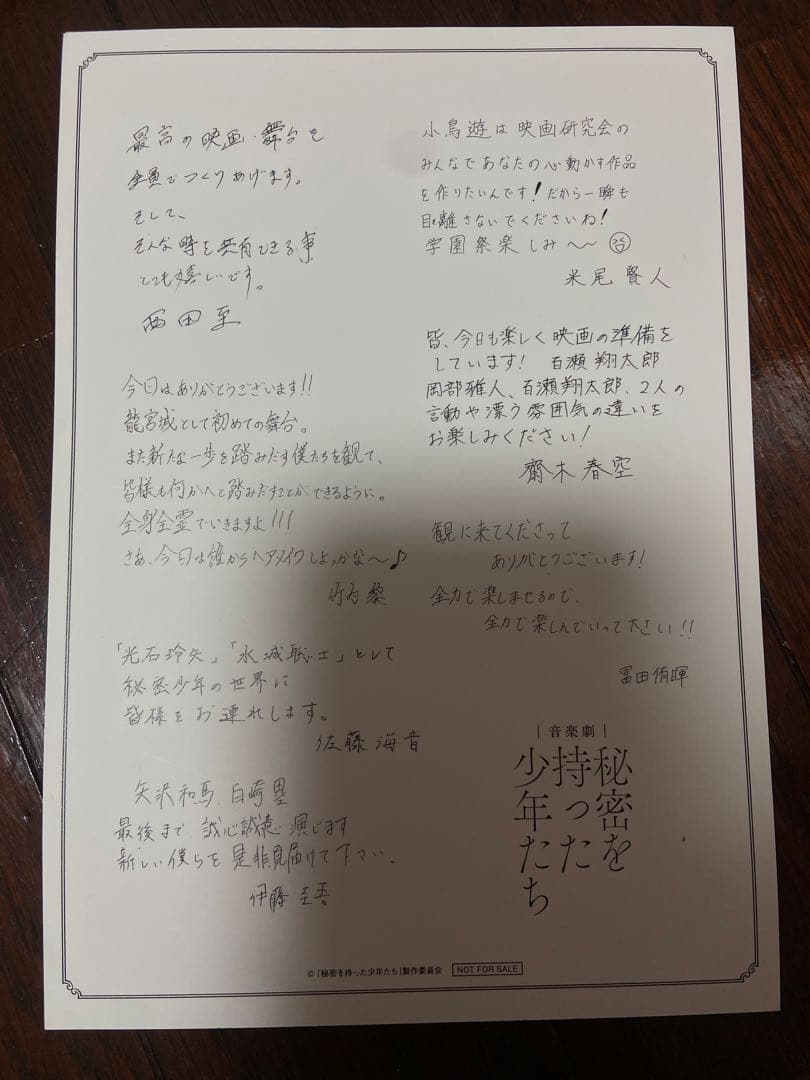 最高の映画・舞台を
全員でつくりあげます。
そして、
そんな時を共有できる事
とても嬉しいです。
西田至
今日はありがとうございます!!
龍宮城として初めての舞台。
また新たな一歩を踏みだす僕たちを観て、
皆様も何かへと踏みだすことができるように。
全身全霊でいきますよ!!!
さあ、今日は誰からヘアメイクしよっかな〜♪
竹内黎
「光石玲矢」「水城聡士」として
秘密少年の世界に
皆様をお連れします。
佐藤海音
矢沢和馬、白崎塁
最後まで、誠心誠意演じます
新しい僕らを是非見届けて下さい、
伊藤圭吾
小鳥遊は映画研究会の
みんなであなたの心動かす作品
を作りたいんです!だから一瞬も
目離さないでくださいね!
学園祭楽しみ〜〜
米尾賢人
皆、今日も楽しく映画の準備を
しています! 百瀬翔太郎
岡部雅人、百瀬翔太郎、2人の
言動や漂う雰囲気の違いを
お楽しみください!
齋木春空
観に来てくださって
ありがとうございます!
全力で楽しませるので、
全力で楽しんでいって下さい!!
冨田侑暉
|音楽劇|
秘密を
持った
少年たち
©「秘密を持った少年たち」製作委員会 NOT FOR SALE